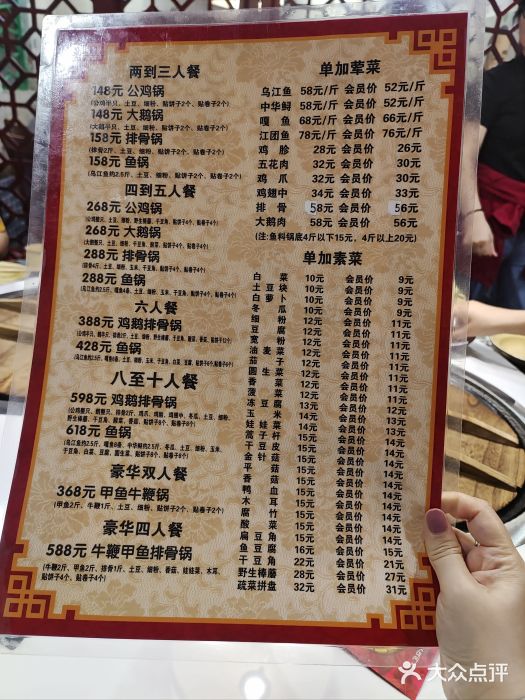 两到三人餐
148元 公鸡锅
(公鸡半只、土豆、细粉、贴饼子2个、贴卷子2个)
148元 大鹅锅
(大鹅半只、土豆、细粉、贴饼子2个、贴卷子2个)
158元 排骨锅
(排骨2斤、土豆、细粉、干豆角、贴饼子2个、贴卷子2个)
158元 鱼锅
四到五人餐
268元 公鸡锅
268元 大鹅锅
288元 排骨锅
288元 鱼锅
六人餐
388元 鸡鹅排骨锅
428元 鱼锅
八至十人餐
598元 鸡鹅排骨锅
618元 鱼锅
豪华双人餐
368元 甲鱼牛鞭锅
(甲鱼2斤、牛鞭1斤、土豆、细粉、贴饼子2个、贴卷子2个)
豪华四人餐
588元 牛鞭甲鱼排骨锅
(牛鞭2斤、甲鱼2斤、排骨1斤、土豆、细粉、香菇、娃娃菜、木耳、
贴饼子4个、贴卷子4个)
单加荤菜
乌江鱼 58元/斤 会员价 52元/斤
中华鲟 58元/斤 会员价 52元/斤
嘎鱼 68元/斤 会员价 66元/斤
江团鱼 78元/斤 会员价 76元/斤
鸡胗 28元 会员价 26元
五花肉 32元 会员价 30元
鸡爪 32元 会员价 30元
鸡翅中 34元 会员价 33元
排骨 58元 会员价 56元
大鹅肉 58元 会员价 56元
(注:鱼料锅底4斤以下15元，4斤以上20元)
单加素菜
白菜 10元 会员价 9元
土豆块 10元 会员价 9元
白萝卜 10元 会员价 9元
冬瓜 10元 会员价 9元
细粉 12元 会员价 11元
豆腐 12元 会员价 11元
宽粉 12元 会员价 11元
油麦菜 12元 会员价 11元
茄子 12元 会员价 11元
圆生菜 12元 会员价 11元
香菜 12元 会员价 11元
菠菜 12元 会员价 11元
冻豆腐 13元 会员价 12元
玉米 14元 会员价 13元
娃娃菜 14元 会员价 13元
蒿子秆 15元 会员价 14元
干豆皮 15元 会员价 14元
金针菇 15元 会员价 14元
平菇 15元 会员价 14元
香菇 15元 会员价 14元
鸭血 15元 会员价 14元
木耳 15元 会员价 14元
腐竹 15元 会员价 14元
酸菜 15元 会员价 14元
扁豆角 15元 会员价 14元
鱼豆腐 16元 会员价 15元
干豆角 22元 会员价 21元
野生榛蘑 28元 会员价 27元
蔬菜拼盘 32元 会员价 31元
大众点评